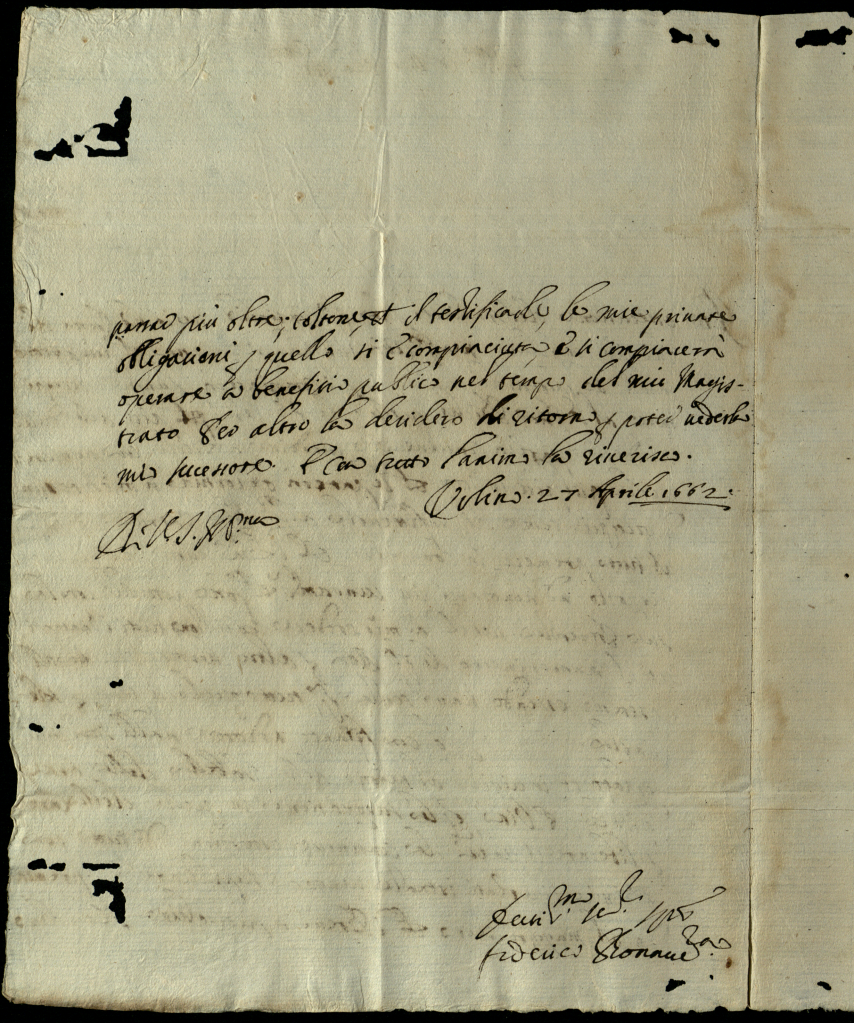 passar più oltre, coltone il certificarle, le mie private
obligationi, quello si è compiaciuta, e si compiacerà
operare à beneficio publico nel tempo del mio Magis-
trato altro la desidero di ritorno poter vederla
mio successore. E con tutto l'animo la riverisco.
27 Aprile 1662.
Di V. S. Ill.ma
ser.
Federico